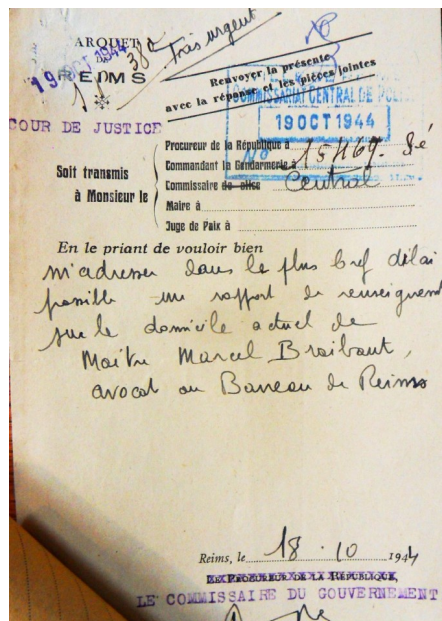 PARQUET
REIMS
19 OCT 1944
Très urgent
Renvoyer la présente
avec la réponse et les pièces jointes
COMMISSARIAT CENTRAL DE POLICE
19 OCT 1944
No 15469. Sé
COUR DE JUSTICE
Soit transmis
à Monsieur le
Procureur de la République à
Commandant la Gendarmerie à
Commissaire de police Central
Maire à
Juge de Paix à
En le priant de vouloir bien
m'adresser dans le plus bref délai
possible un rapport de renseignement
sur le domicile actuel de
Maître Marcel Braibant,
avocat au Barreau de Reims
Reims, le 18 - 10 1944
LE PROCUREUR DE LA RÉPUBLIQUE,
LE COMMISSAIRE DU GOUVERNEMENT